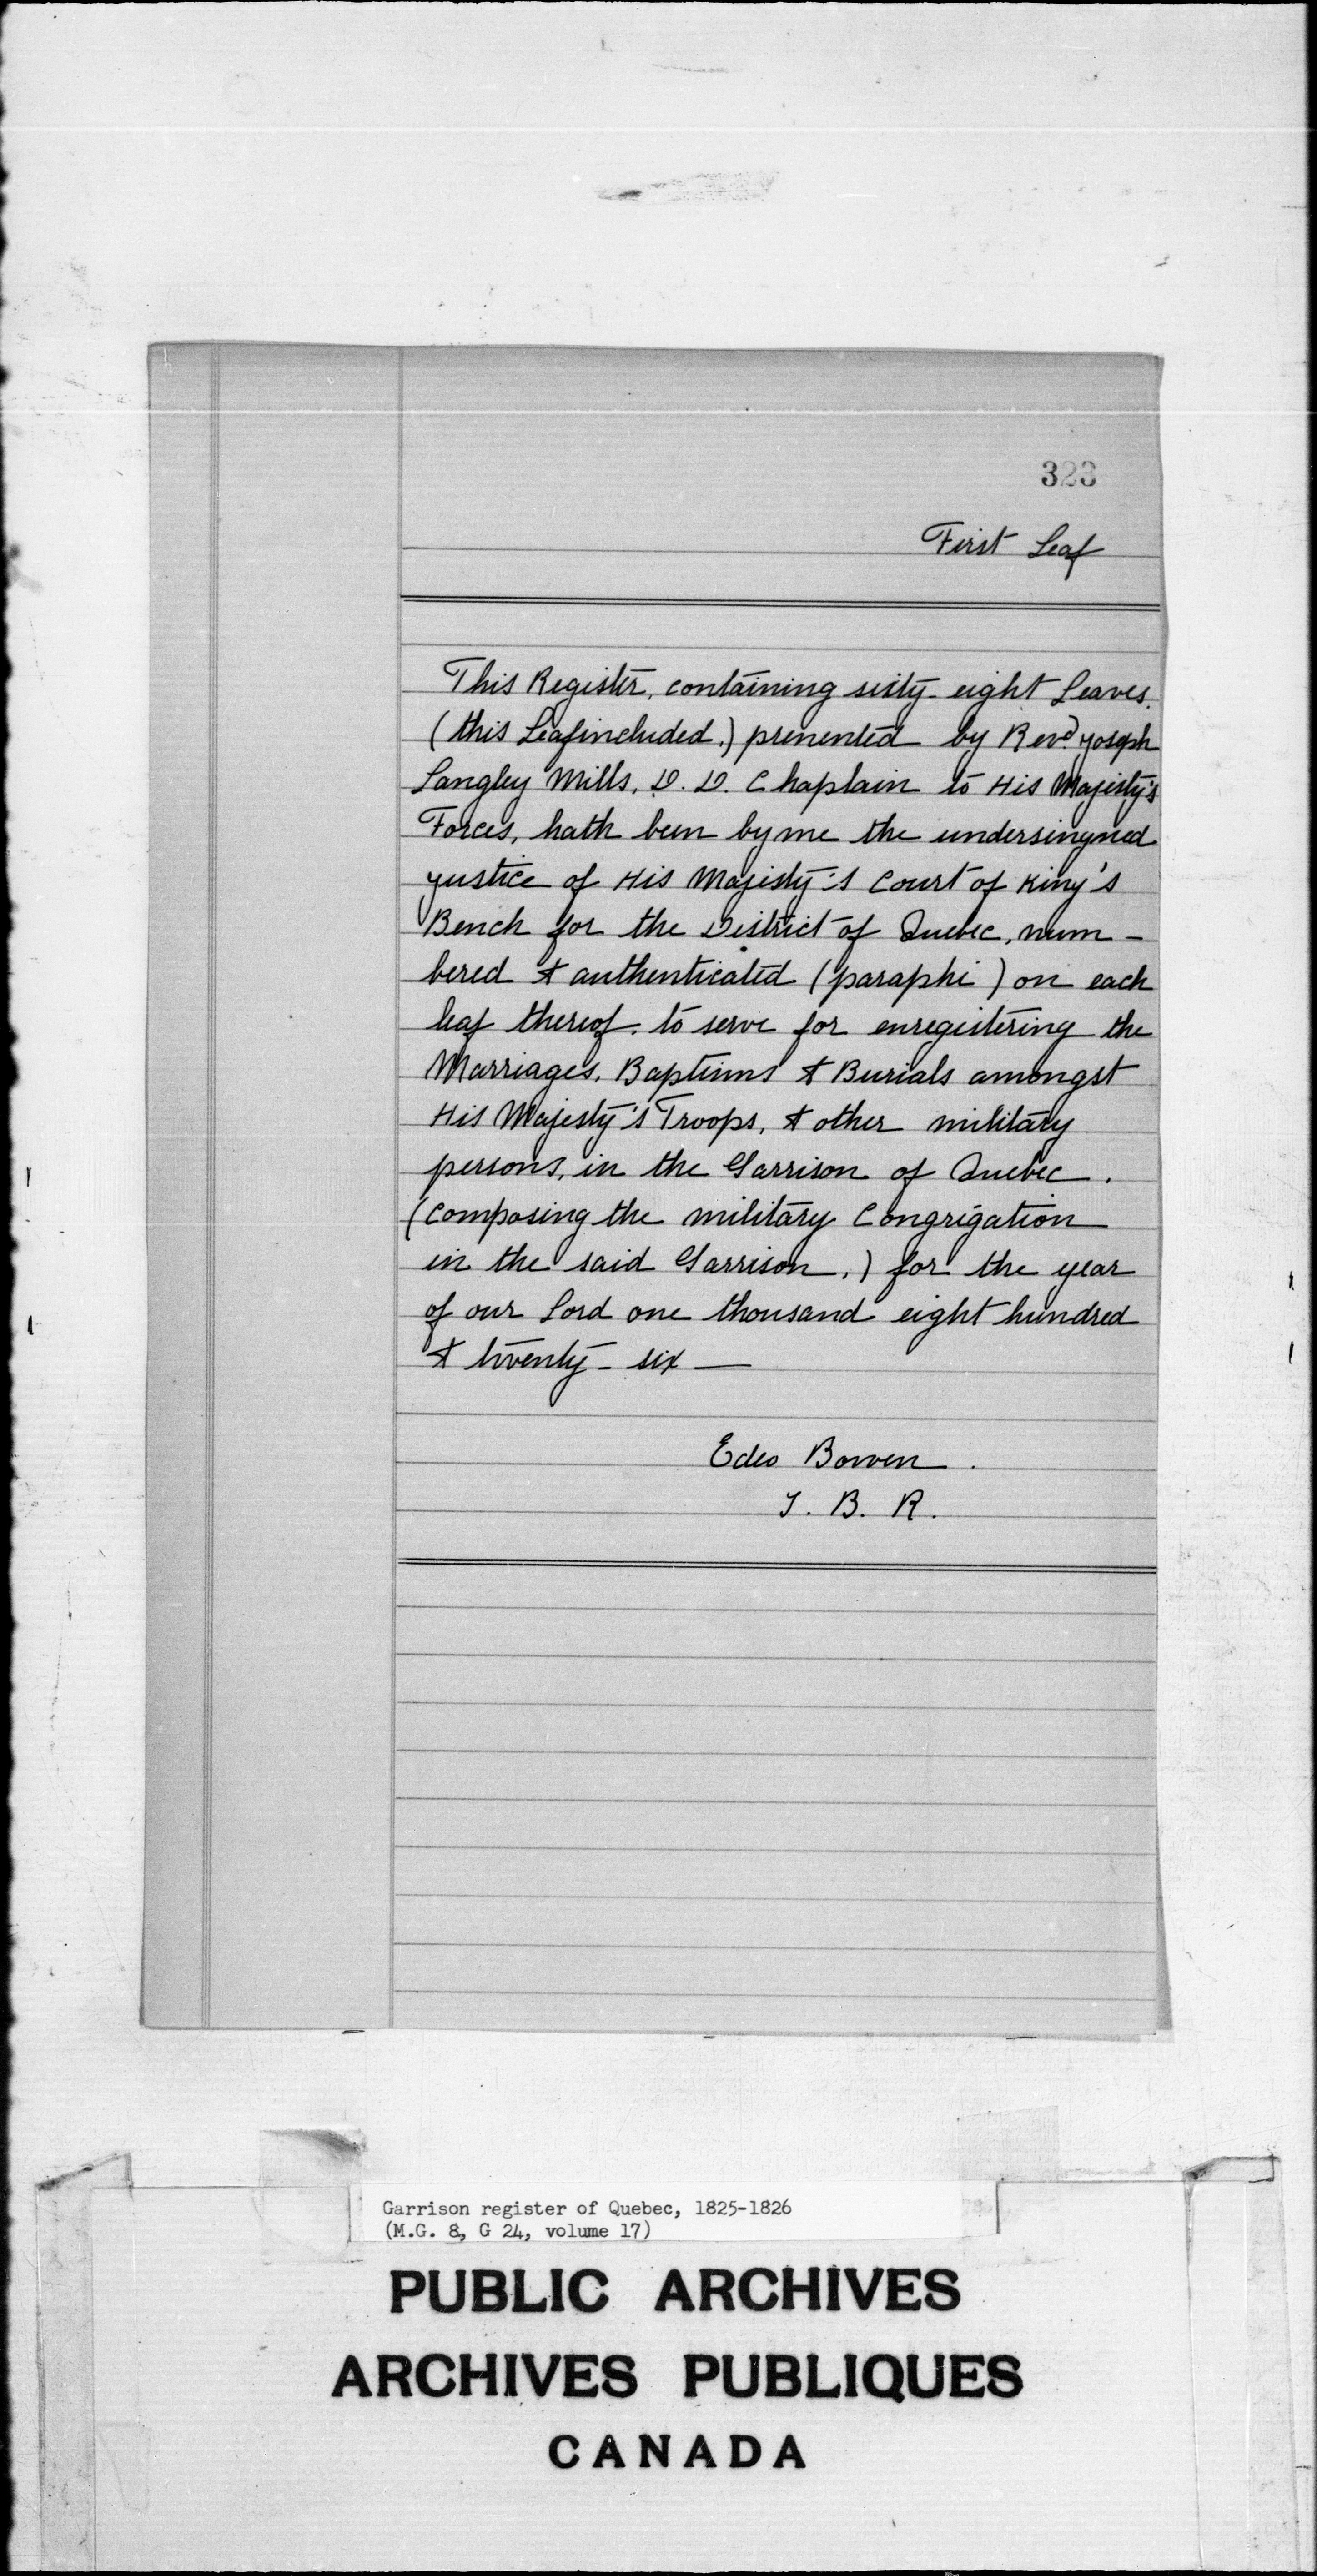 323
First Leaf
This Register, containing sixty-eight Leaves.
(this Leaf included,) prenented by Revd. Joseph
Langley Mills, D. D. Chaplain to His Majesty's
Forces, hath been by me the undersingned
Justice of His Majesty's Court of King's
Bench for the District of Quebec, num-
bered & authenticated (paraphi) on each
leaf thereof, to serve for enregistering the
Marriages, Baptisms & Burials amongst
His Majesty's Troops, & other military
persons, in the Garrison of Quebec.
(composing the military Congrigation
in the said Garrison,) for the year
of our Lord one thousand eight hundred
& twenty-six —
Bowen.
J. B. R.
Garrison register of Quebec, 1825-1826
(M.G. 8, G 24, volume 17)
PUBLIC ARCHIVES
ARCHIVES PUBLIQUES
CANADA